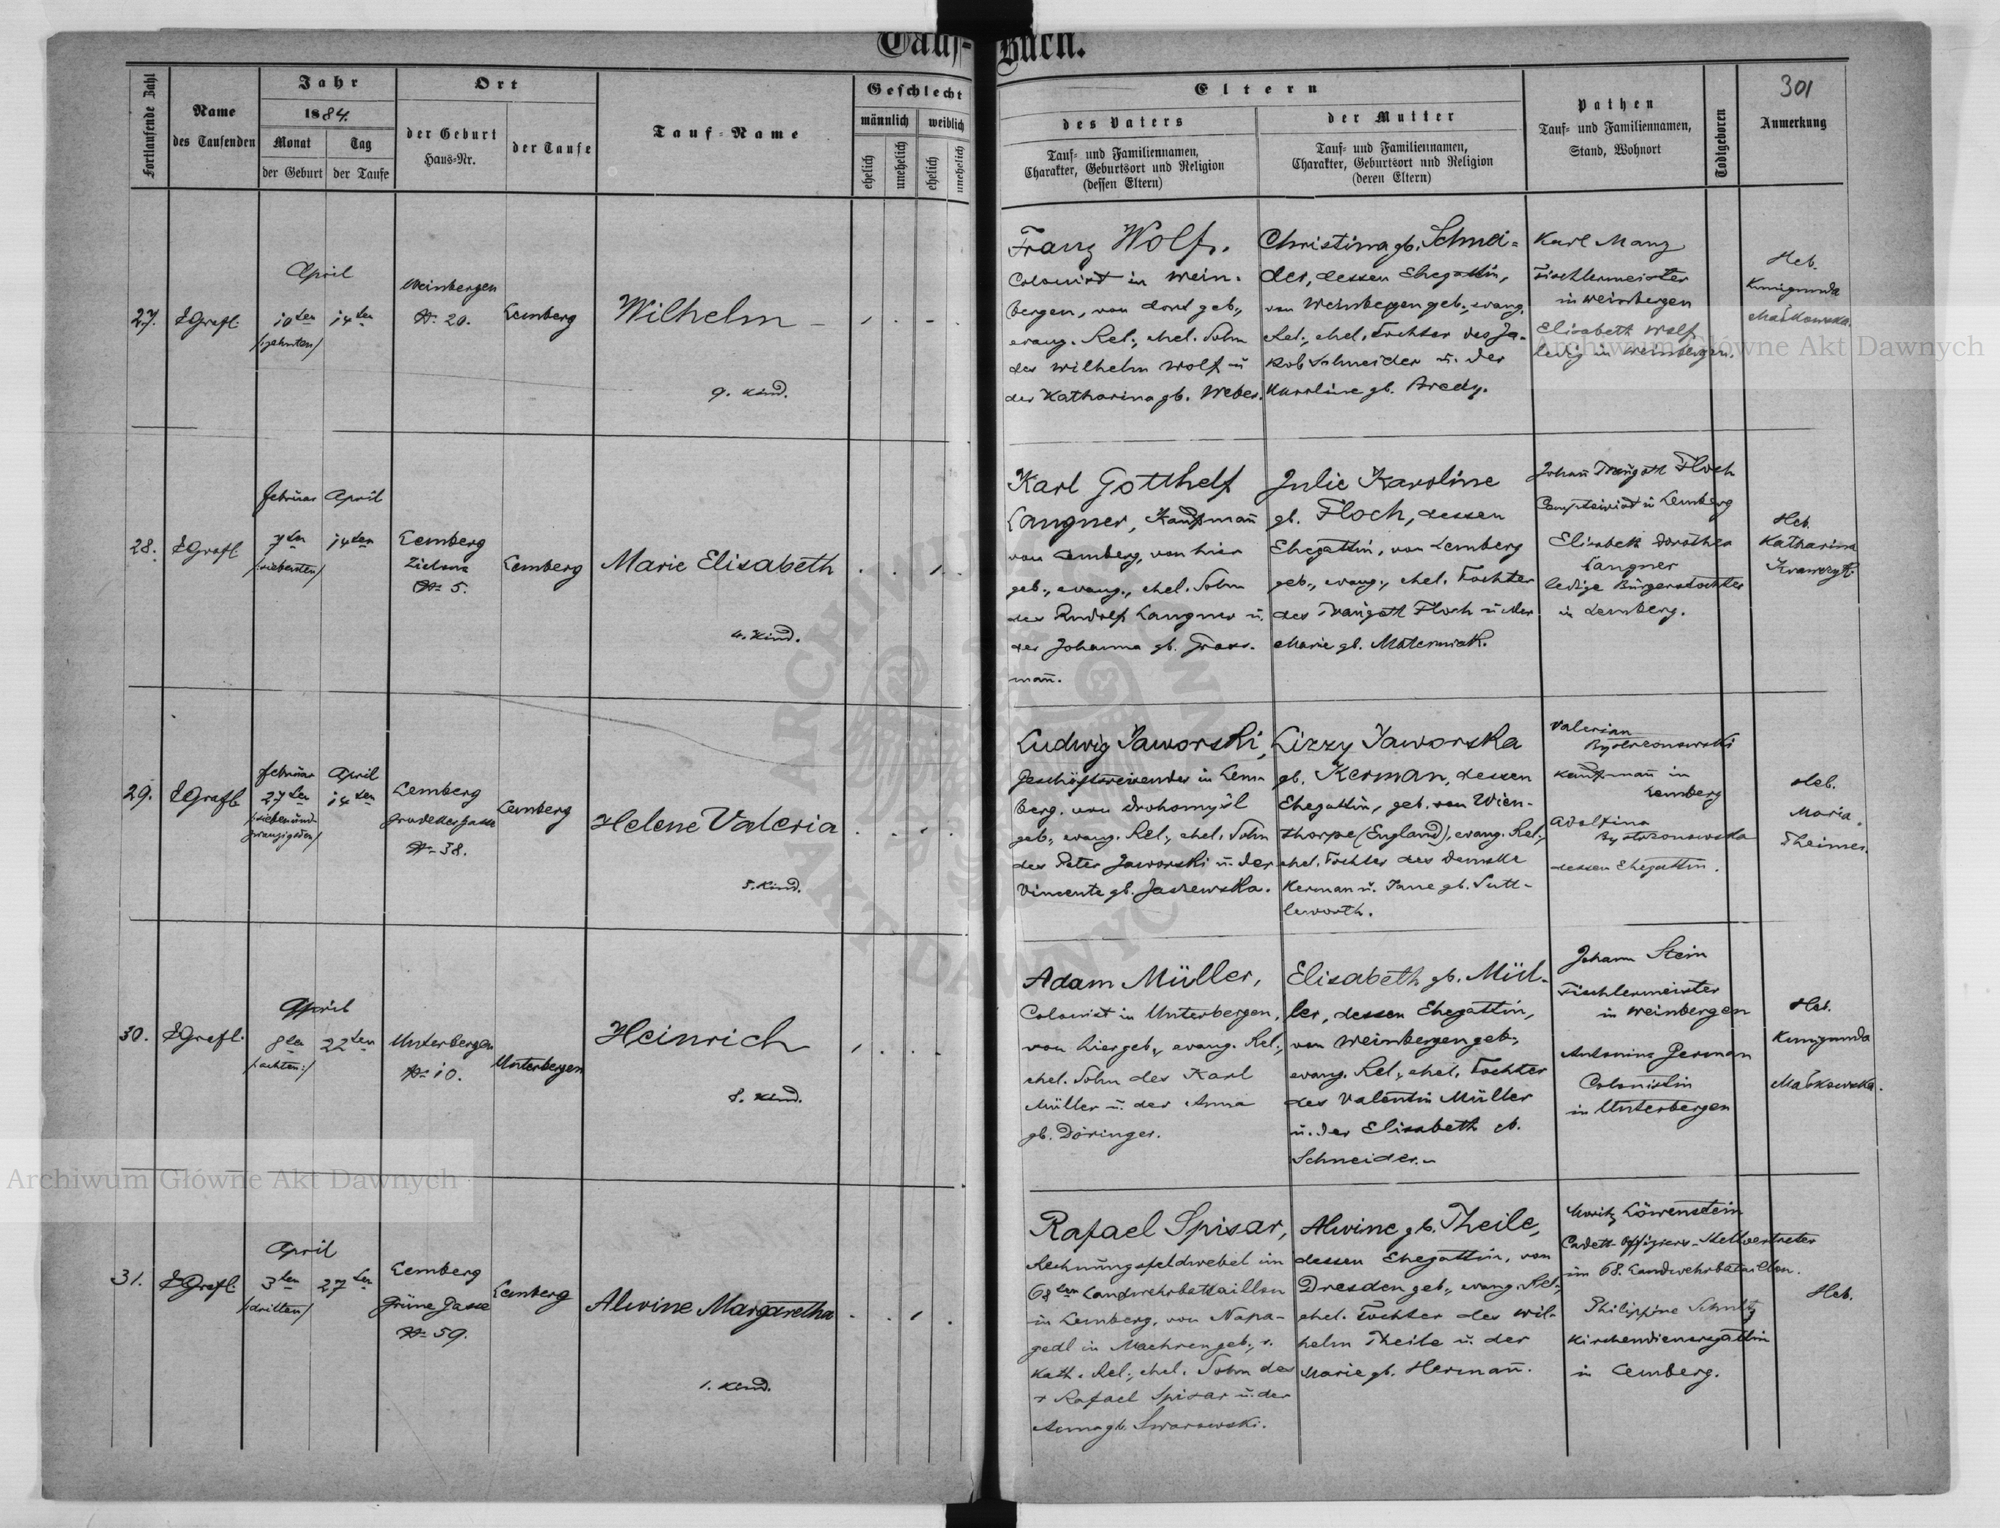 Tauf-Buch.
Fortlaufende Zahl
Name
des Taufenden
Jahr
1884.
Monat
der Geburt
Tag
der Taufe
Ort
der Geburt
Haus-Nr.
der Taufe
Tauf-Name
Geschlecht
männlich
weiblich
ehelich
unehelich
ehelich
unehelich
Eltern
des Vaters
Tauf- und Familiennamen,
Charakter, Geburtsort und Religion
(dessen Eltern)
der Mutter
Tauf- und Familiennamen,
Charakter, Geburtsort und Religion
(deren Eltern)
Pathen
Tauf- und Familiennamen,
Stand, Wohnort
Todtgeboren
301
Anmerkung
27.
Grafl
April
10ten
/zehnten/
14ten
Weinbergen
No 20.
Lemberg
Wilhelm
9. Kind.
Franz Wolf,
Colonist in Wein-
bergen, von dort geb.,
evang. Rel., ehel. Sohn
des Wilhelm Wolf u
der Katharina gb. Weber.
Christina gb. Schnei-
der, dessen Ehegattin,
von Weinbergen geb., evang.
Rel., ehel. Tochter des Ja-
kob Schneider u. der
Karoline gb. Bredy.
Karl Manz
Tischlermeister
in Weinbergen
Elisabeth Wolf
ledig in Weinbergen.
Heb.
Kunigunda
Maśkowska.
28.
Grafl
Februar
7ten
/siebenten/
April
14ten
Lemberg
Zielona
No 5.
Lemberg
Marie Elisabeth
4. Kind.
Karl Gotthelf
Langner, Kaufmann
von Lemberg, von hier
geb., evang., ehel. Sohn
des Rudolf Langner u.
der Johanna gb. Gross-
mann.
Julie Karoline
gb. Floch, dessen
Ehegattin, von Lemberg
geb., evang., ehel. Tochter
des Traugott Floch u der
Marie gb. Maternick.
Johann Traugott Floch
Comptoirist in Lemberg
Elisabeth Dorothea
Langner
ledige Bürgerstochter
in Lemberg.
Heb.
Katharina
Krawczyk.
29.
Grafl
Februar
27ten
/siebenund-
zwanzigsten/
April
14ten
Lemberg
Grodekergasse
No 38.
Lemberg
Helene Valeria
5. Kind.
Ludwig Jaworski,
Geschäftsreisender in Lem-
berg, von Drohomyśl
geb., evang. Rel., ehel. Sohn
des Peter Jaworski u. der
Vincente gb. Jaszewska.
Lizzy Jaworska
gb. Kerman, dessen
Ehegattin, geb. von Wien-
thorpe (England), evang. Rel.,
ehel. Tochter des
Kerman u. Jane gb. Sutt-
leworth.
Valerian
Bystrzonowski
Kaufmann in
Lemberg
Adolfina
Bystrzonowska
dessen Ehegattin.
Heb.
Maria
Theimer.
30.
Grafl
April
8ten
/:achten:/
22ten
Unterbergen
No 10.
Unterbergen
Heinrich
8. Kind.
Adam Müller,
Colonist in Unterbergen,
von hier geb., evang. Rel.,
ehel. Sohn des Karl
Müller u. der Anna
gb. Döringer.
Elisabeth gb. Mül-
ler, dessen Ehegattin,
von Weinbergen geb.,
evang. Rel., ehel. Tochter
des Valentin Müller
u. der Elisabeth gb.
Schneider.
Johann Stein
Tischlermeister
in Weinbergen
Antonina German
Colonistin
in Unterbergen
Heb.
Kunigunda
Maśkowska.
31.
Grafl
April
3ten
/dritten/
27ten
Lemberg
Grüne Gasse
No 59.
Lemberg
Alwine Margaretha
1. Kind.
Rafael Spisar,
Rechnungsfeldwebel im
68ten Landwehrbattaillon
in Lemberg, von Napa-
gedl in Maehren geb., r.
kath. Rel., ehel. Sohn des
+ Rafael Spisar u. der
Anna gb. Swarowski.
Alwine gb. Theile,
dessen Ehegattin, von
Dresden geb., evang. Rel.,
ehel. Tochter des Wil-
helm Theile u. der
Marie gb. Hermann.
Moritz Löwenstein
Cadett-Offiziers-Stellvertreter
im 68. Landwehrbataillon.
Philippine Schultz
Kirchendienersgattin
in Lemberg.
Heb.
Archiwum Główne Akt Dawnych
Archiwum Główne Akt Dawnych
ARCHIWUM GŁÓWNE AKT DAWNYCH